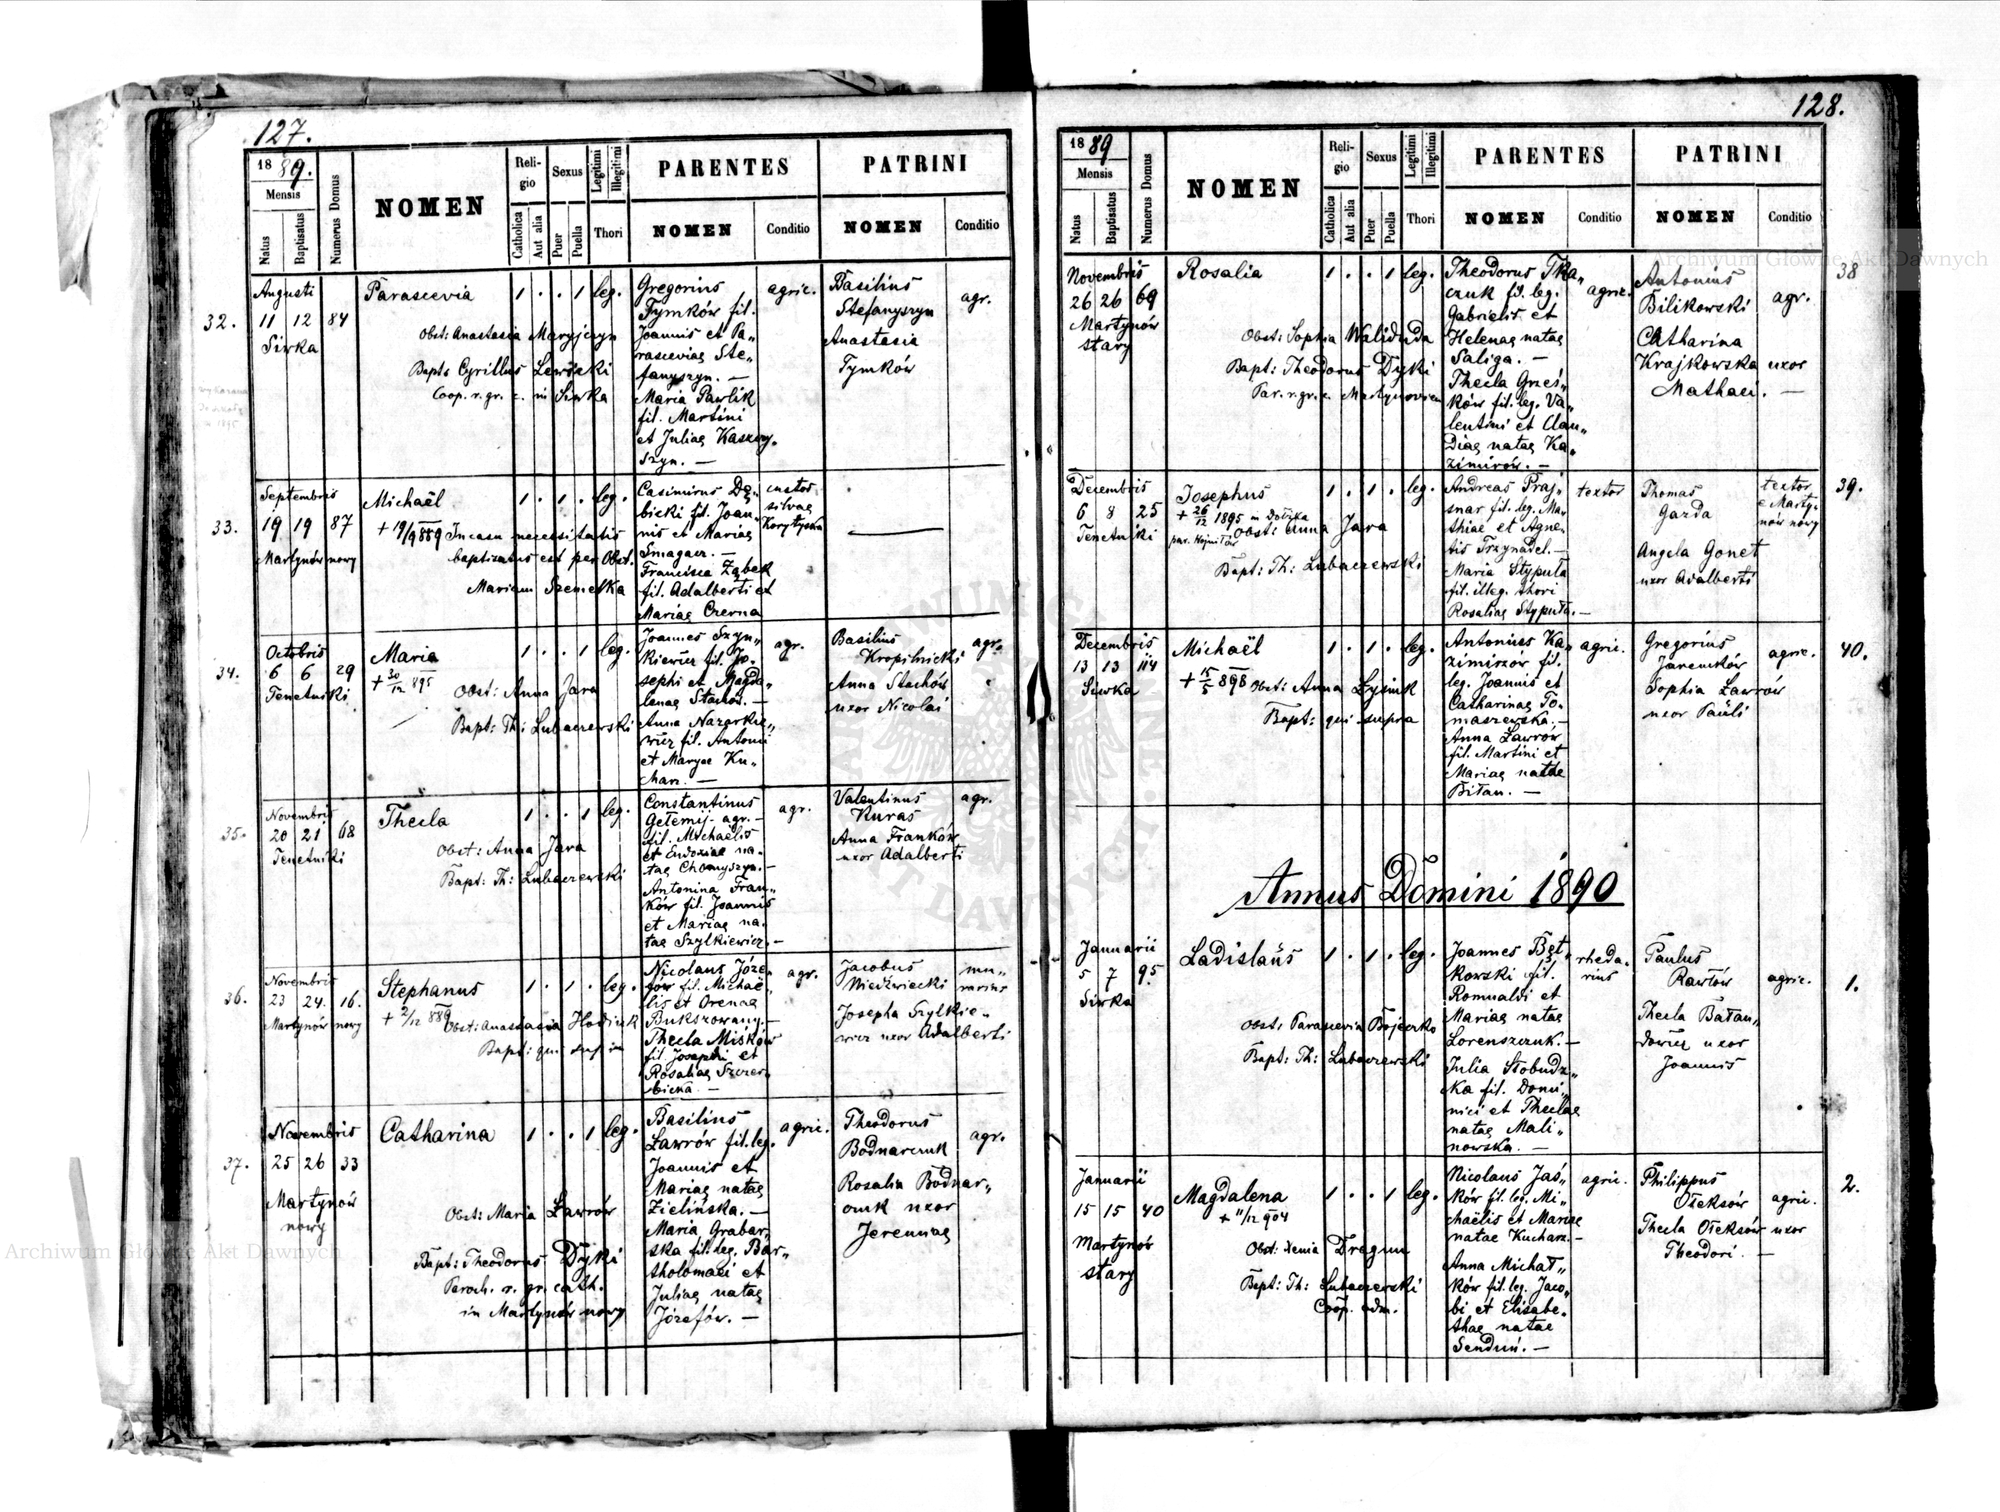 127.
1889.
Mensis
Natus
Baptisatus
Numerus Domus
NOMEN
Religio
Catholica
Aut alia
Sexus
Puer
Puella
Legitimi
Illegitimi
Thori
PARENTES
NOMEN
Conditio
PATRINI
NOMEN
Conditio
32.
Augusti
11 12 84
Siwka
Parascevia
1 . . 1 leg.
Obst: Anastasia
Bapt: Cyrillus Lewicki
Coop. r. gr. c. in Siwka
Gregorius
Tymków fil.
Joannis et Pa-
rasceviae Ste-
fanyszyn. —
Maria Pawlik
fil. Martini
et Juliae Kaszczy-
szyn. —
agric.
Basilius
Stefanyszyn
Anastasia
Tymków
agr.
33.
Septembris
19 19 87
Martynów nowy
Michaël
+ 19/9 889 In casu necessitatis
baptizatus est per Obst.
Mariam Szemelka
1 . 1 . leg.
Casimirus Dę-
bicki fil. Joan-
nis et Mariae
Smagacz. —
Francisca Ząbek
fil. Adalberti et
Mariae Czerna
custos
silvae
34.
Octobris
6 6 29
Tenetniki
Maria
+ 30/12 895
Obst: Anna Jara
Bapt: Th: Lubaczewski
1 . . 1 leg.
Joannes Szyn-
kiewicz fil. Jo-
sephi et Magda-
lenae Stachów. —
Anna Nazarkie-
wicz fil. Antoni
et Maryae Ku-
charz. —
agr.
Basilius
Kropilnicki
Anna Stachów
uxor Nicolai
agr.
35.
Novembris
20 21 68
Tenetniki
Thecla
Obst: Anna Jara
Bapt: Th: Lubaczewski
1 . . 1 leg.
Constantinus
agr. —
fil. Michaëlis
et Eudoxiae na-
tae Chomyszyn. —
Antonina Fran-
ków fil. Joannis
et Mariae na-
tae Szylkiewicz. —
agr.
Valentinus
Kuras
Anna Franków
uxor Adalberti
agr.
36.
Novembris
23 24. 16.
Martynów nowy
Stephanus
+ 2/12 889
Obst: Anastasia
Bapt: qui sup
1 . 1 . leg.
Nicolaus Józe-
fów fil. Michaë-
lis et Orenae
Bukszowany. —
Thecla Miśków
fil. Josephi et
Rosaliae Szczer-
bicka —
agr.
Jacobus
Niedźwiecki
Josepha Szylkie-
wicz uxor Adalberti
mu-
rarius
37.
Novembris
25 26 33
Martynów
nowy
Catharina
1 . . 1 leg.
Obst: Maria Ławrów
Bapt: Theodorus Dyki
Paroch. r. gr. cath.
in Martynów nowy
Basilius
Ławrów fil. leg.
Joannis et
Mariae natae
Zielińska. —
Maria Grabar-
ska fil. leg. Bar-
tholomaei et
Juliae natae
Józefów. —
agric.
Theodorus
Bodnarczuk
Rosalia Bodnar-
czuk uxor
Jeremiae
agr.
128.
1889
Mensis
Natus
Baptisatus
Numerus Domus
NOMEN
Religio
Catholica
Aut alia
Sexus
Puer
Puella
Legitimi
Illegitimi
Thori
PARENTES
NOMEN
Conditio
PATRINI
NOMEN
Conditio
38
Novembris
26 26 69
Martynów
stary
Rosalia
1 . . 1 leg.
Obst: Sophia Waliduda
Bapt: Theodorus Dyki
Par. r. gr. c.
Theodorus Tka-
czuk fil. leg.
Gabrielis et
Helenae natae
Saliga. —
Thecla Grześ-
ków fil. leg. Va-
lentini et Clau-
diae natae Ka-
zimirów. —
agric.
Antonius
Bilikowski
Catharina
Krajkowska uxor
Mathaei. —
agr.
39.
Decembris
6 8 25
Tenetniki
Josephus
+ 26/12 1895
Obst: Anna Jara
Bapt: Th: Lubaczewski
1 . 1 . leg.
Andreas Praj-
snar fil. leg. Ma-
thiae et Agne-
tis Trzynadel. —
Maria Stypuła
fil. illeg. thori
Rosaliae Stypuła. —
textor
Thomas
Gazda
Angela Gonet
uxor Adalberti
textor
e Marty-
nów nowy
40.
Decembris
13 13 114
Siwka
Michaël
+ 15/5 898 Obst: Anna Łysiuk
Bapt: qui supra
1 . 1 . leg.
Antonius Ka-
zimirzow fil.
leg. Joannis et
Catharinae To-
maszewska. —
Anna Ławrów
fil. Martini et
Mariae natae
Bitan. —
agric.
Gregorius
Jaremków
Sophia Ławrów
uxor Pauli
agric.
Annus Domini 1890
1.
Januarii
5 7 95.
Siwka
Ladislaus
1 . 1 . leg.
Obst: Parascevia Bojeczko
Bapt: Th: Lubaczewski
Joannes Bęt-
kowski fil.
Romualdi et
Mariae natae
Lorenszczuk. —
Julia Stobudz-
ka fil. Domi-
nici et Theclae
natae Mali-
nowska. —
rheda-
rius
Paulus
Pawłów
Thecla Bałan-
dowicz uxor
Joannis
agric.
2.
Januarii
15 15 40
Martynów
stary
Magdalena
+ 11/12 904
1 . . 1 leg.
Obst: Xenia Dragun
Bapt: Th: Lubaczewski
Coop. adm.
Nicolaus Jaś-
ków fil. leg. Mi-
chaëlis et Mariae
natae Kucharz. —
Anna Michał-
ków fil. leg. Jaco-
bi et Elisabe-
thae natae
Senduń. —
agric.
Philippus
Ołeksów
Thecla Ołeksów uxor
Theodori. —
agric.
Archiwum Główne Akt Dawnych
Archiwum Główne Akt Dawnych